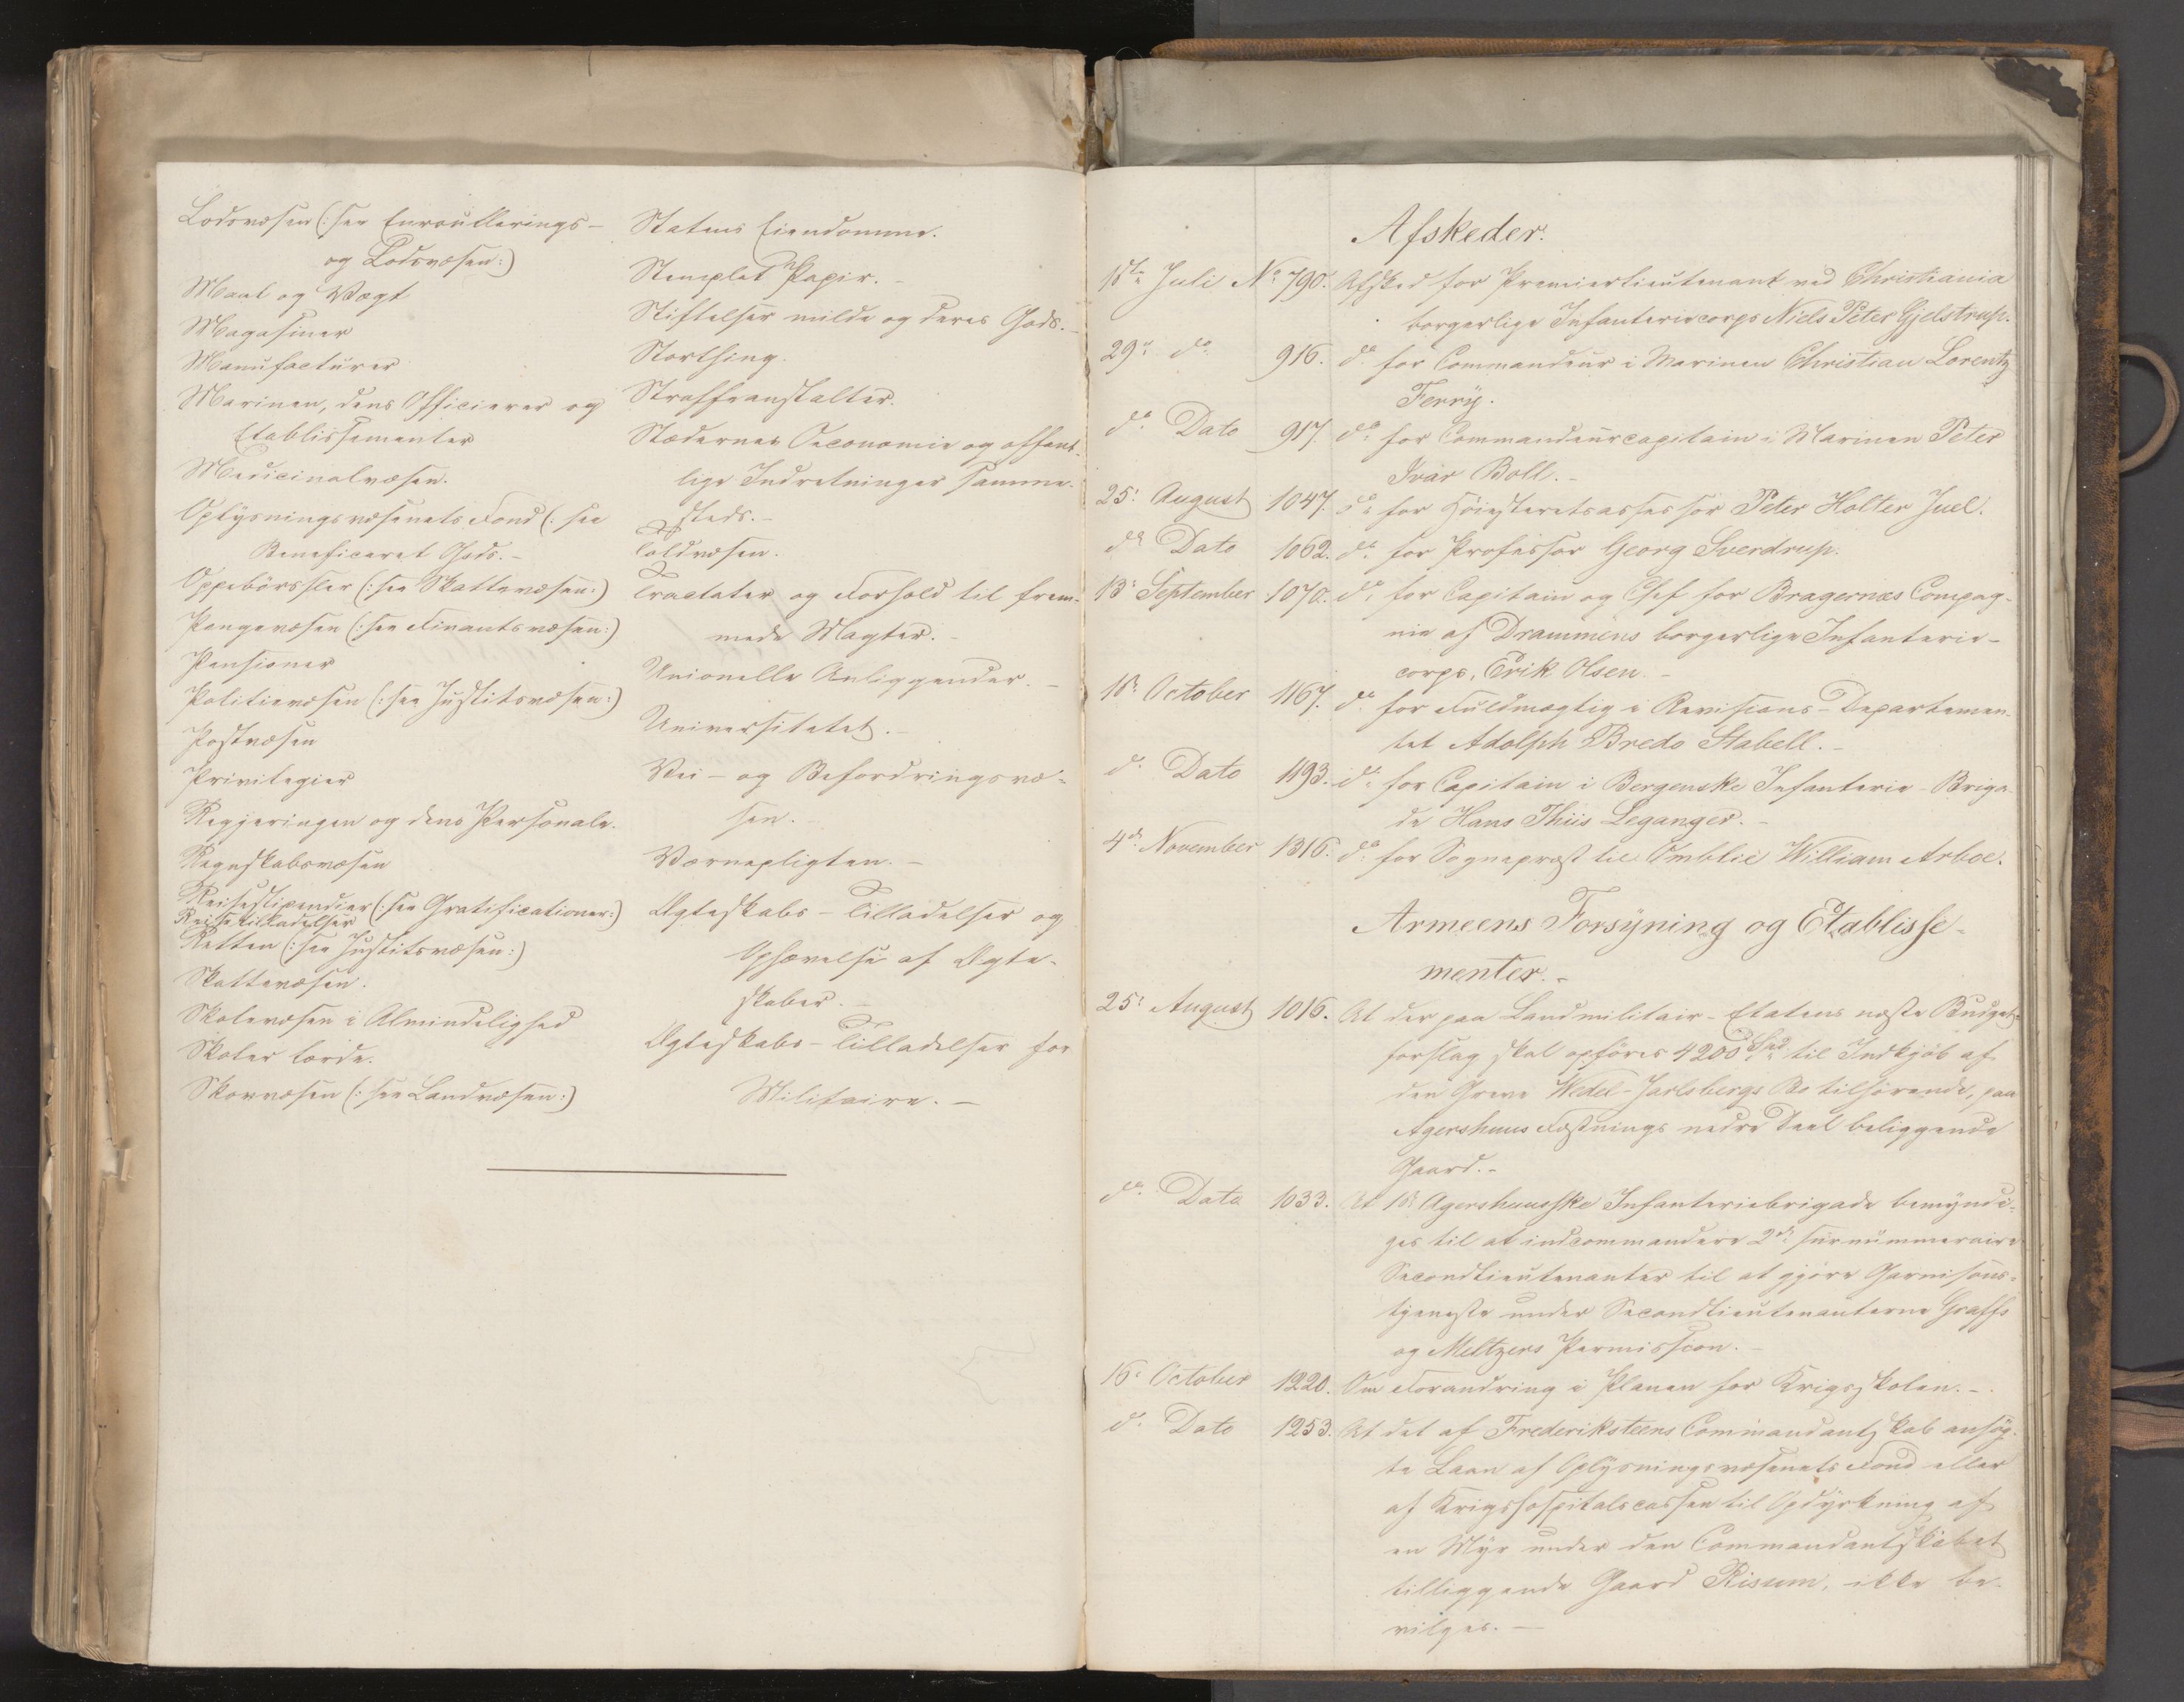 Lodsvæsen (: see Enroullerings-
og Lodsvæsen:)
Maal og Vægt
Magasiner
Manufacturer
Marinen, dens Officierer og
Etablissementer
Medicinalvæsen.
Oplysningsvæsenets Fond (: see
Beneficeret Gods.-
Oppebörsler (: see Skattevæsen:)
Pengevæsen (: see Finantsvæsen:)
Pensioner
Politievæsen (: see Justitsvæsen:)
Postvæsen
Privilegier
Regjeringen og dens Personale.
Regnskabsvæsen
Reisestipendier (: see Gratificationer:)
Reisetilladelser
Retten (: see Justitsvæsen:)
Skattevæsen.
Skolevæsen i Almindelighed
Skoler lærde.
Skovvæsen (: see Landvæsen:)
Statens Eiendomme.
Stemplet Papir.-
Stiftelser milde og deres Gods.-
Storthing.
Straffeanstalter.
Stædernes Oeconomie og offent-
lige Indretninger samme-
steds.-
Toldvæsen.
Tractater og Forhold til frem-
mede Magter.-
Unionelle Anliggender.-
Universitetet.-
Vei- og Befordringsvæ-
sen.-
Værnepligten.-
Ægteskabs-Tilladelser og
Ophævelse af Ægte-
skaber.-
Ægteskabs-Tilladelser for
Militaire.-
Afskeder.
1ste Juli No 790. Afsked for Premierlieutenant ved Christiania
borgerlige Infanteriecorps Niels Peter Gjelstrup.
29de do 916. do for Commandeur i Marinen Christian Lorentz
Ferry.
do Dato 917. do for Commandeurcapitain i Marinen Peter
Ivar Boll.-
25: August 1047. do for Höiesteretsassessor Peter Holter Juel.
do Dato 1062. do for Professor Georg Sverdrup.
13: September 1070. do for Capitain og Chef for Bragernæs Compag-
nie af Drammens borgerlige Infanterie-
corps, Erik Olsen.-
October 1167. do for Fuldmægtig i Revisions-Departemen-
tet Adolph Bredo Stabell.-
do Dato 1193. do for Capitain i Bergenske Infanterie-Briga-
de Hans Thiis Leganger.-
4de November 1316. do for Sogneprest til Omblie William Arboe.
Armeens Forsyning og Etablisse-
menter.-
25: August 1016. At der paa Landmilitair-Etatens næste Budget-
forslag skal opföres 4200 Spd til Indkjöb af
den Greve Wedel-Jarlsbergs Bo tilhörende, paa
Agershuus Fæstnings nedre Deel beliggende
Gaard.-
do Dato 1033. At 1ste Agershuusske Infanteriebrigade bemyndi-
ges til at indcommandere 2de surnummeraire
Secondlieutenanter til at gjöre Garnisons-
tjeneste under Secondlieutenanterne Graffs
og Meltzers Permission.-
16: October 1220. Om Forandring i Planen for Krigsskolen.-
do Dato 1253. At det af Frederiksteens Commandantskab ansög-
te Laan af Oplysningsvæsenets Fond eller
af Krigshospitalscassen til Opdyrkning af
en Myr under den Commandantskabet
tilliggende Gaard Risum, ikke be-
vilges.-